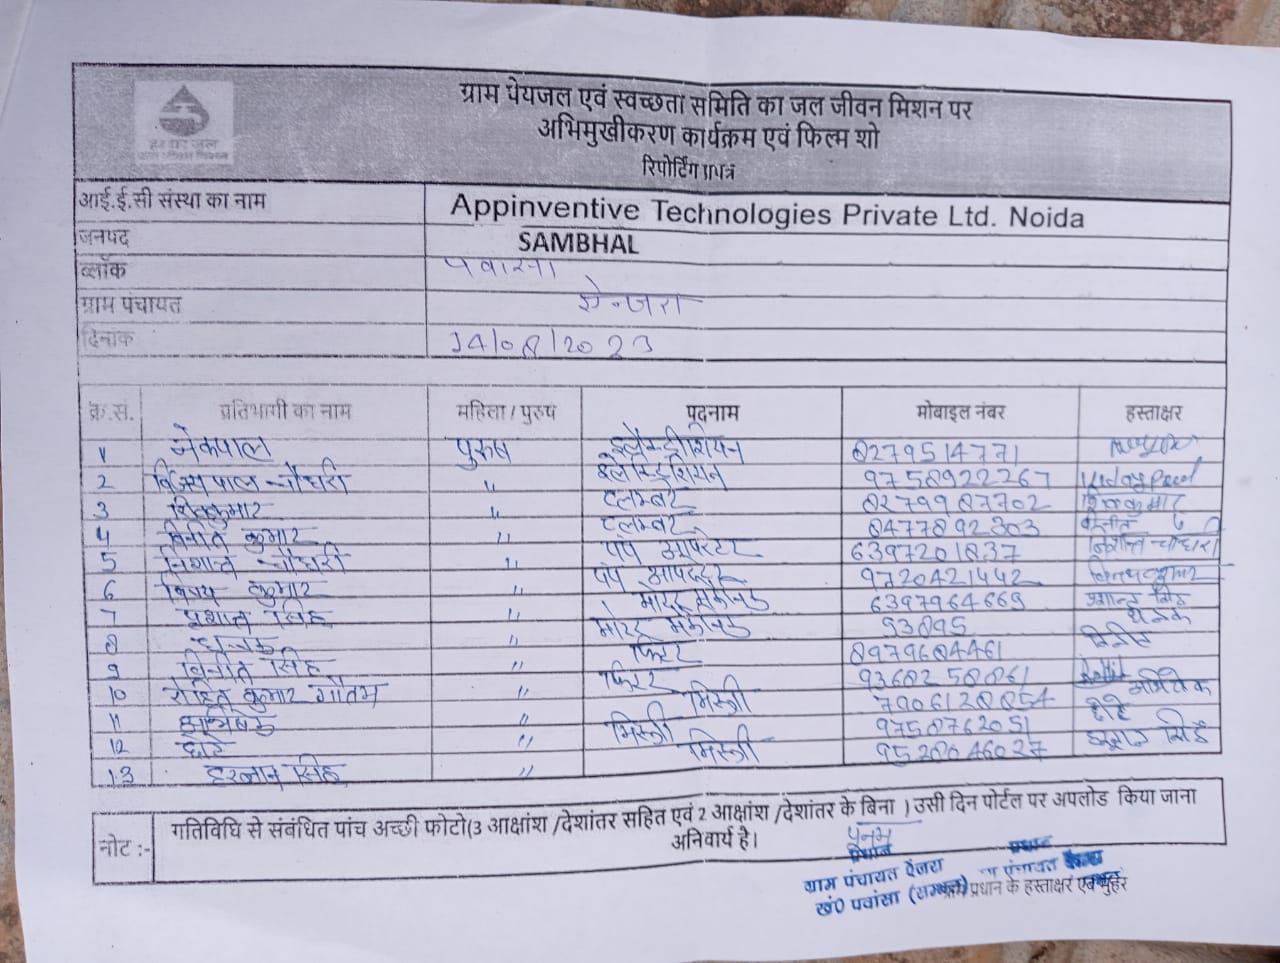 हर घर जल
जल जीवन मिशन
ग्राम पेयजल एवं स्वच्छता समिति का जल जीवन मिशन पर
अभिमुखीकरण कार्यक्रम एवं फिल्म शो
रिपोर्टिंग प्रपत्र
आई.ई.सी संस्था का नाम Appinventive Technologies Private Ltd. Noida
जनपद SAMBHAL
ब्लॉक पवांसा
ग्राम पंचायत ऐन्जरा
दिनांक 14/08/2023
क्र.सं. प्रतिभागी का नाम महिला / पुरुष पदनाम मोबाइल नंबर हस्ताक्षर
1 नेकपाल पुरुष 8279514771
2 विजयपाल चौधरी " 9758922267
3 शिवकुमार " प्लम्बर 8279987702 शिवकुमार
4 विनीत कुमार " प्लम्बर 8477892803 विनीत
5 निशान्त चौधरी " पंप आपरेटर 6397201837 निशान्त चौधरी
6 विनय कुमार " पंप 9720421442 विनय कुमार
7 प्रशान्त सिंह " मोटर 6397964669 प्रशान्त सिंह
8 " मोटर 53895
9 विनीत सिंह " फिटर 8979684461 विनीत
10 रोहित कुमार गौतम " फिटर 9368258861
11 " मिस्त्री 7906128854 अभिषेक
12 छोटे " मिस्त्री 9758762051 छोटे
13 हरनाम सिंह " मिस्त्री 9528046027 सिंह
नोट :- गतिविधि से संबंधित पांच अच्छी फोटो(3 आक्षांश /देशांतर सहित एवं 2 आक्षांश /देशांतर के बिना ) उसी दिन पोर्टल पर अपलोड किया जाना
अनिवार्य है।
पूनम
प्रधान
ग्राम पंचायत ऐंजरा
खं0 पवांसा (सम्भल)
प्रधान के हस्ताक्षर एवं मुहर